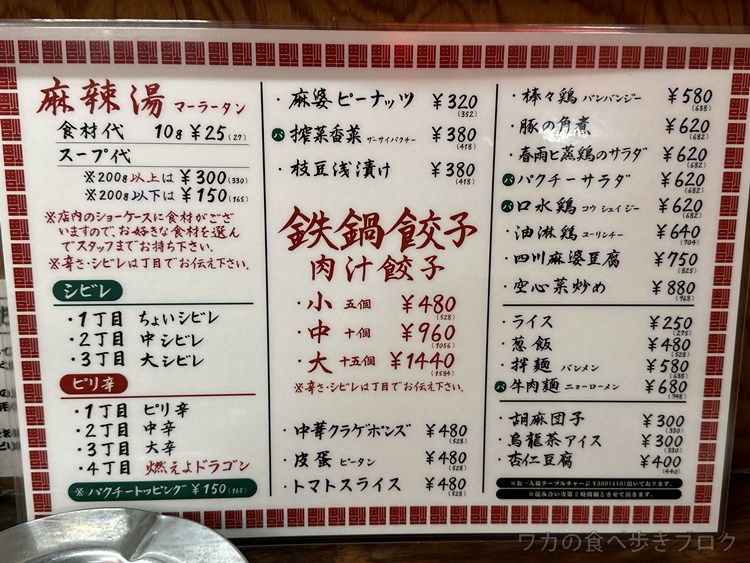 麻辣湯 マーラータン
食材代 10g ¥25(27)
スープ代
※200g以上は ¥300(330)
※200g以下は ¥150(165)
※店内のショーケースに食材がござ
いますので、お好きな食材を選ん
でスタッフまでお持ち下さい。
※辛さ・シビレは丁目でお伝え下さい。
シビレ
・1丁目 ちょいシビレ
・2丁目 中シビレ
・3丁目 大シビレ
ピリ辛
・1丁目 ピリ辛
・2丁目 中辛
・3丁目 大辛
・4丁目 燃えよドラゴン
※パクチートッピング ¥150(165)
・麻婆ピーナッツ ¥320(352)
パ 搾菜香菜 ザーサイパクチー ¥380(418)
・枝豆浅漬け ¥380(418)
鉄鍋餃子
肉汁餃子
・小 五個 ¥480(528)
・中 十個 ¥960(1056)
・大 十五個 ¥1440(1584)
※辛さ・シビレは丁目でお伝え下さい。
・中華クラゲポンズ ¥480(528)
・皮蛋 ピータン ¥480(528)
・トマトスライス ¥480(528)
・棒々鶏 バンバンジー ¥580(638)
・豚の角煮 ¥620(682)
・春雨と蒸鶏のサラダ ¥620(682)
パ パクチーサラダ ¥620(682)
パ 口水鶏 コウシェイジー ¥620(682)
・油淋鶏 ユーリンチー ¥640(704)
・四川麻婆豆腐 ¥750(825)
・空心菜炒め ¥880(968)
・ライス ¥250(275)
・葱飯 ¥480(528)
・拌麺 バンメン ¥580(638)
パ 牛肉麺 ニューローメン ¥680(748)
・胡麻団子 ¥300(330)
・烏龍茶アイス ¥300(330)
・杏仁豆腐 ¥400(440)
※お一人様テーブルチャージ¥380(418)頂いております。
※混み合い次第2時間制とさせて頂きます。
ワカの食べ歩きブログ